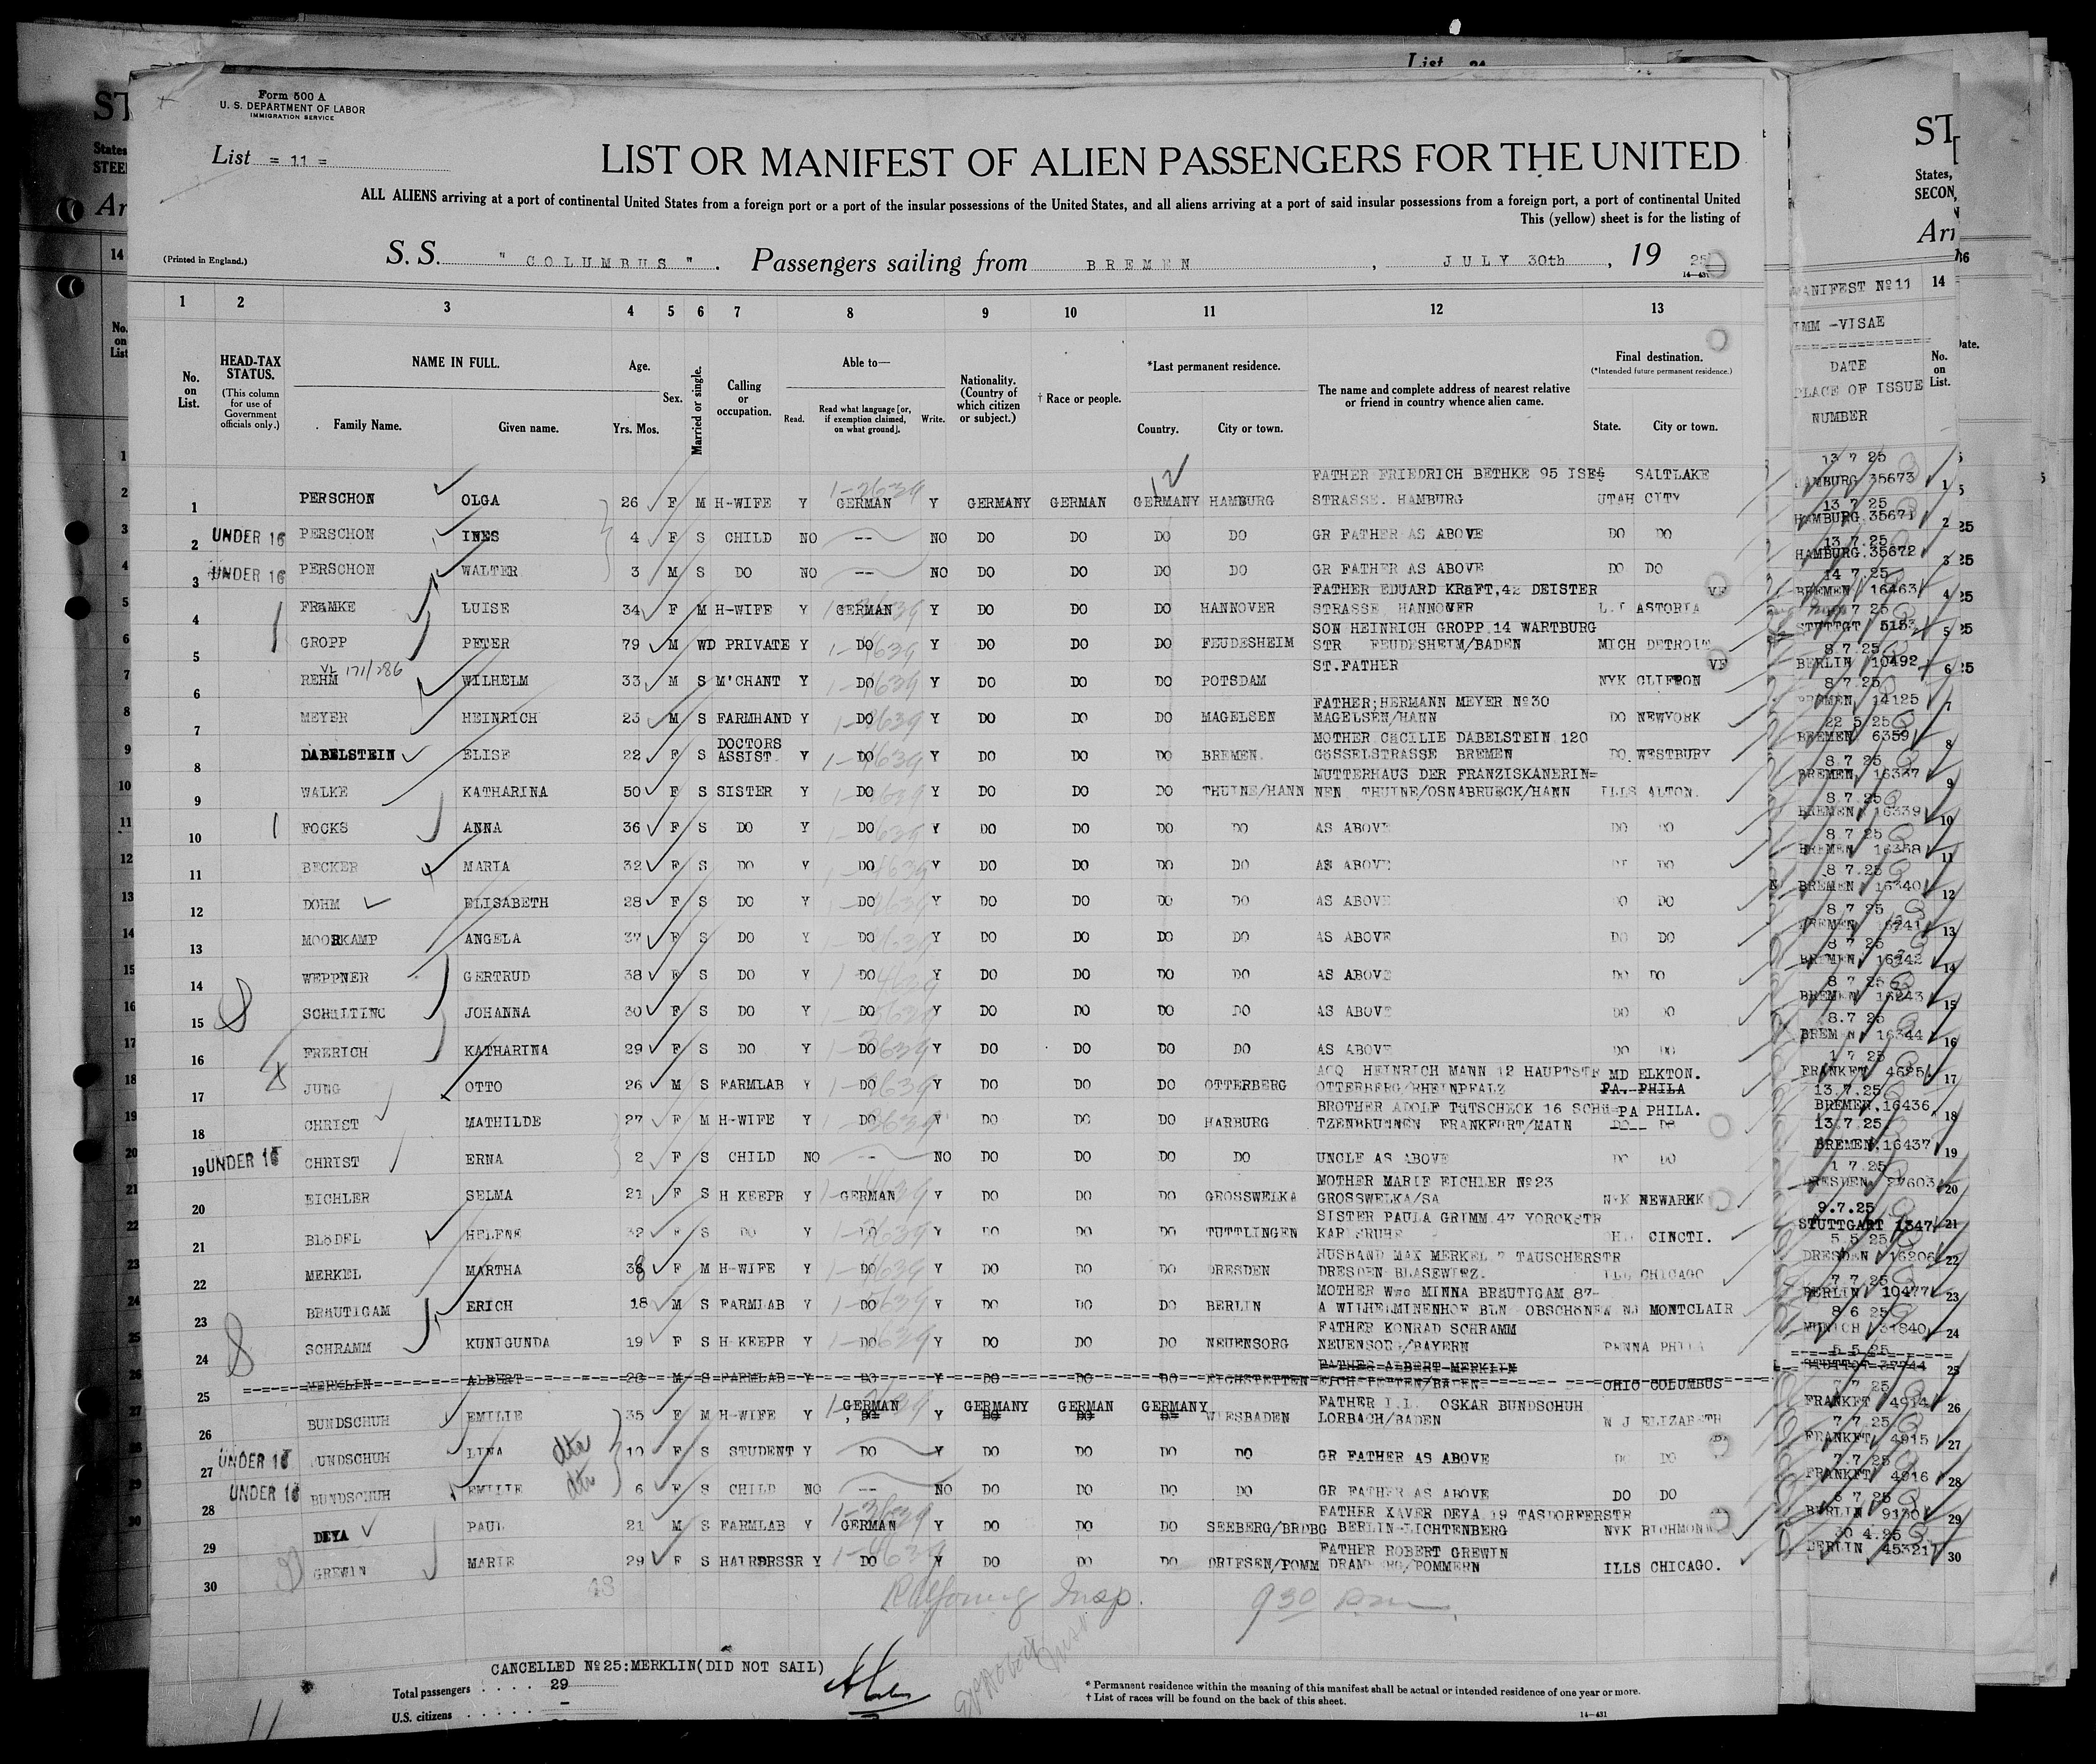 List 24
Form 500 A
U. S. DEPARTMENT OF LABOR
IMMIGRATION SERVICE
List = 11 =
LIST OR MANIFEST OF ALIEN PASSENGERS FOR THE UNITED
ALL ALIENS arriving at a port of continental United States from a foreign port or a port of the insular possessions of the United States, and all aliens arriving at a port of said insular possessions from a foreign port, a port of continental United
This (yellow) sheet is for the listing of
(Printed in England.)
S. S. " COLUMBUS " . Passengers sailing from BREMEN , JULY 30th , 19 25
14—431
1 2 3 4 5 6 7 8 9 10 11 12 13
No. on List.
HEAD-TAX STATUS.
(This column for use of Government officials only.)
NAME IN FULL.
Family Name. Given name.
Age.
Yrs. Mos.
Sex.
Married or single.
Calling or occupation.
Able to—
Read. Read what language [or, if exemption claimed, on what ground]. Write.
Nationality. (Country of which citizen or subject.)
† Race or people.
*Last permanent residence.
Country. City or town.
The name and complete address of nearest relative or friend in country whence alien came.
Final destination.
(*Intended future permanent residence.)
State. City or town.
MANIFEST No 11
IMM -VISAE
DATE
PLACE OF ISSUE
NUMBER
FATHER FRIEDRICH BETHKE 95 SALTLAKE 13 7 25
1 PERSCHON OLGA 26 F M H-WIFE Y GERMAN Y GERMANY GERMAN GERMANY HAMBURG STRASSE. HAMBURG UTAH CITY HAMBURG 35673 1
13 7 25
2 UNDER 16 PERSCHON INES 4 F S CHILD NO -- NO DO DO DO DO GR FATHER AS ABOVE DO DO HAMBURG.35671 2
13 7.25
3 UNDER 16 PERSCHON WALTER 3 M S DO NO -- NO DO DO DO DO GR FATHER AS ABOVE DO DO HAMBURG.35672 3
FATHER EDUARD KRaFT,42 DEISTER 14 7.25
4 FRaMKE LUISE 34 F M H-WIFE Y GERMAN Y DO DO DO HANNOVER STRASSE HANNOVER ASTORIA BREMEN 16463 4
SON HEINRICH GROPP 14 WARTBURG 7 25
5 GROPP PETER 79 M WD PRIVATE Y DO Y DO DO DO FEUDESHEIM STR FEUDESHEIM/BADEN MICH DETROIT STUTTGT 5153 5
VL 171/286 ST.FATHER 8.7.25
6 REHM WILHELM 33 M S M'CHANT Y DO Y DO DO DO POTSDAM NYK CLIFTON BERLIN 10492 6
FATHER;HERMANN MEYER No30 8 7.25
7 MEYER HEINRICH 23 M S FARMHAND Y DO Y DO DO DO MAGELSEN MAGELSEN/HANN DO NEWYORK BREMEN 14125 7
DOCTORS MOTHER CäCILIE DABELSTEIN 120 22 5 25
8 DABELSTEIN ELISE 22 F S ASSIST. Y DO Y DO DO DO BREMEN. GöSSELSTRASSE BREMEN DO. WESTBURY BREMEN 6359 8
MUTTERHAUS DER FRANZISKANERIN= 8 7 25
9 WALKE KATHARINA 50 F S SISTER Y DO Y DO DO DO THUINE/HANN NEN THUINE/OSNABRUECK/HANN ILLS ALTON. BREMEN 16337 9
8 7 25
10 FOCKS ANNA 36 F S DO Y DO Y DO DO DO DO AS ABOVE DO DO BREMEN 16339 10
8 7 25
11 BECKER MARIA 32 F S DO Y DO Y DO DO DO DO AS ABOVE DO DO BREMEN 16338 11
8 7.25
12 DOHM ELISABETH 28 F S DO Y DO Y DO DO DO DO AS ABOVE DO DO BREMEN 16340 12
8 7 25
13 MOORKAMP ANGELA 37 F S DO Y DO Y DO DO DO DO AS ABOVE DO DO BREMEN 13
8 7 25
14 WEPPNER GERTRUD 38 F S DO Y DO Y DO DO DO DO AS ABOVE DO DO BREMEN 14
8 7 25
15 JOHANNA 30 F S DO Y DO Y DO DO DO DO AS ABOVE DO DO BREMEN 15
8.7 25
16 FRERICH KATHARINA 29 F S DO Y DO Y DO DO DO DO AS ABOVE DO DO BREMEN 16344 16
ACQ HEINRICH MANN 12 HAUPTSTR MD ELKTON. 1 7 25
17 JUNG OTTO 26 M S FARMLAB Y DO Y DO DO DO OTTERBERG OTTERBERG/RHEINPFALZ PA. PHILA FRANKFT 4625 17
BROTHER ADOLF TüTSCHECK 16 SCHü= PA PHILA. 13.7.25
18 CHRIST MATHILDE 27 F M H-WIFE Y DO Y DO DO DO HARBURG TZENBRUNNEN FRANKFURT/MAIN DO DO BREMEN.16436 18
13.7.25
19 UNDER 16 CHRIST ERNA 2 F S CHILD NO -- NO DO DO DO DO UNCLE AS ABOVE DO DO BREMEN.16437 19
MOTHER MARIE EICHLER No23 1 7.25
20 EICHLER SELMA 21 F S H KEEPR Y GERMAN Y DO DO DO GROSSWELKA GROSSWELKA/SA NYK NEWARK DRESDEN 20
SISTER PAULA GRIMM 47 YORCKSTR 9.7.25
21 BLöDEL HELENE 32 F S DO Y DO Y DO DO DO TUTTLINGEN KARLSRUHE CINCTI. STUTTGART 1347 21
HUSBAND MAX MERKEL 7 TAUSCHERSTR 5.5 25
22 MERKEL MARTHA 38 F M H-WIFE Y DO Y DO DO DO DRESDEN DRESDEN BLASEWITZ. ILL CHICAGO DRESDEN 16206 22
MOTHER Wwe MINNA BRäUTIGAM 87- 7 7.25
23 BRäUTIGAM ERICH 18 M S FARMLAB Y DO Y DO DO DO BERLIN A WILHELMINENHOF BLN OBSCHöNEW NJ MONTCLAIR BERLIN 10477 23
FATHER KONRAD SCHRAMM 8 6 25
24 SCHRAMM KUNIGUNDA 19 F S H-KEEPR Y DO Y DO DO DO NEUENSORG NEUENSORG/BAYERN PENNA PHILA MUNICH 31840 24
FATHER ALBERT MERKLIN 5 5 25
25 MERKLIN ALBERT 28 M S FARMLAB Y DO Y DO DO DO EICHSTETTEN EICHSTETTEN/BADEN OHIO COLUMBUS STUTTGT 37744 25
GERMAN GERMANY GERMAN GERMANY FATHER OSKAR BUNDSCHUH 7 7 25
26 BUNDSCHUH EMILIE 35 F M H-WIFE Y DO Y DO DO DO WIESBADEN LORBACH/BADEN N J ELIZABETH FRANKFT 4914 26
7 7.25
27 UNDER 16 BUNDSCHUH LINA dtr 10 F S STUDENT Y DO Y DO DO DO DO GR FATHER AS ABOVE DO DO FRANKFT 4915 27
7.7.25
28 UNDER 16 BUNDSCHUH EMILIE dtr 6 F S CHILD NO -- NO DO DO DO DO GR FATHER AS ABOVE DO DO FRANKFT 4916 28
FATHER XAVER DEYA 19 TASDORFERSTR 8 7 25
29 DEYA PAUL 21 M S FARMLAB Y GERMAN Y DO DO DO SEEBERG/BRDBG BERLIN-LICHTENBERG NYK RICHMOND BERLIN 9130 29
FATHER ROBERT GREWIN 30 4.25
30 GREWIN MARIE 29 F S HAIRDRSSR Y DO Y DO DO DO DRIESEN/POMM POMMERN ILLS CHICAGO. BERLIN 45321 30
48
Insp. 9 30 a.m.
CANCELLED No25:MERKLIN(DID NOT SAIL)
Total passengers . . . . 29
U.S. citizens . . . . . –
* Permanent residence within the meaning of this manifest shall be actual or intended residence of one year or more.
† List of races will be found on the back of this sheet.
14—431
11